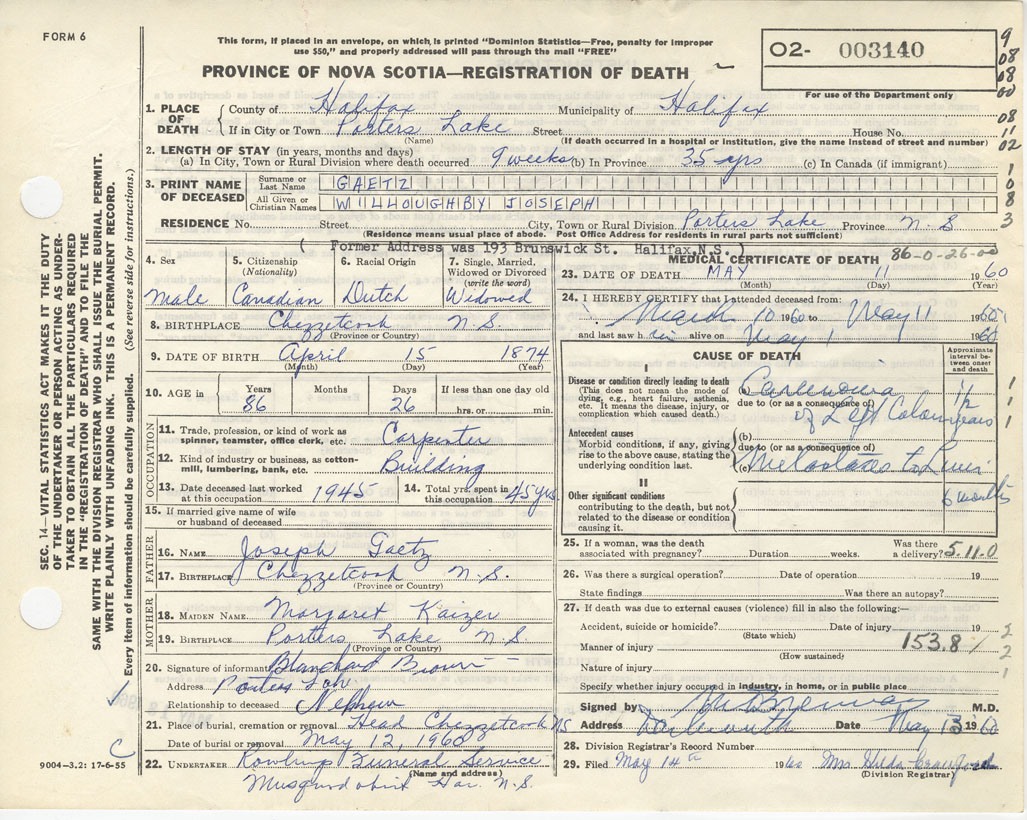 FORM 6
This form, if placed in an envelope, on which, is printed "Dominion Statistics—Free, penalty for improper
use $50," and properly addressed will pass through the mail "FREE"
PROVINCE OF NOVA SCOTIA—REGISTRATION OF DEATH
O2- 003140
For use of the Department only
9
08
08
00
08
11
02
1. PLACE OF DEATH { County of Halifax Municipality of Halifax
If in City or Town Porters Lake Street House No.
(Name) (If death occurred in a hospital or institution, give the name instead of street and number)
2. LENGTH OF STAY (in years, months and days)
(a) In City, Town or Rural Division where death occurred 9 weeks (b) In Province 35 yrs (c) In Canada (if immigrant)
3. PRINT NAME OF DECEASED { Surname or Last Name GAETZ
All Given or Christian Names WILLOUGHBY JOSEPH
1
0
8
3
RESIDENCE No. Street City, Town or Rural Division Porters Lake Province N.S
(Residence means usual place of abode. Post Office Address for residents in rural parts not sufficient)
( Former Address was 193 Brunswick St. Halifax,N.S. )
4. Sex Male
5. Citizenship (Nationality) Canadian
6. Racial Origin Dutch
7. Single, Married, Widowed or Divorced (write the word) Widowed
8. BIRTHPLACE Chezzetcook N.S.
(Province or Country)
9. DATE OF BIRTH April 15 1874
(Month) (Day) (Year)
10. AGE in Years Months Days If less than one day old
86 26 hrs. or min.
OCCUPATION
11. Trade, profession, or kind of work as spinner, teamster, office clerk, etc. Carpenter
12. Kind of industry or business, as cotton-mill, lumbering, bank, etc. Building
13. Date deceased last worked at this occupation 1945
14. Total yrs. spent in this occupation 45 yrs
15. If married give name of wife or husband of deceased
FATHER
16. NAME Joseph Gaetz
17. BIRTHPLACE Chezzetcook N.S.
(Province or Country)
MOTHER
18. MAIDEN NAME Margaret Kaizer
19. BIRTHPLACE Porters Lake N S
(Province or Country)
20. Signature of informant Blanchard Brown
Address Porters
Relationship to deceased Nephew
21. Place of burial, cremation or removal Head Chezzetcook NS
Date of burial or removal May 12, 1960
22. UNDERTAKER Funeral Service
(Name and address)
Har. N.S.
MEDICAL CERTIFICATE OF DEATH 86-0-26-00
23. DATE OF DEATH MAY 11 1960
(Month) (Day) (Year)
24. I HEREBY CERTIFY that I attended deceased from:
March 10 1960 to May 11 1960
and last saw h alive on May 1960
CAUSE OF DEATH
Approximate interval between onset and death
I
Disease or condition directly leading to death
(This does not mean the mode of dying, e.g., heart failure, asthenia, etc. It means the disease, injury, or complication which caused death.)
(a) Carcinoma
due to (or as a consequence of) of Left Colon years
Antecedent causes
Morbid conditions, if any, giving rise to the above cause, stating the underlying condition last.
(b)
due to (or as a consequence of)
(c) Metastates to Liver
6 months
II
Other significant conditions
contributing to the death, but not related to the disease or condition causing it.
25. If a woman, was the death associated with pregnancy? Duration weeks. Was there a delivery? 5.11.0
26. Was there a surgical operation? Date of operation 19
State findings Was there an autopsy?
27. If death was due to external causes (violence) fill in also the following:—
Accident, suicide or homicide? Date of injury 19
(State which)
Manner of injury 153.8
(How sustained)
Nature of injury
Specify whether injury occurred in industry, in home, or in public place
Signed by M.D.
Address Dartmouth Date May 13 1960
28. Division Registrar's Record Number
29. Filed May 14th 1960 Mrs Hilda Crawford
(Division Registrar)
SEC. 14—VITAL STATISTICS ACT MAKES IT THE DUTY
OF THE UNDERTAKER OR PERSON ACTING AS UNDER-
TAKER TO OBTAIN ALL THE PARTICULARS REQUIRED
IN THE "REGISTRATION OF DEATH" AND TO FILE THE
SAME WITH THE DIVISION REGISTRAR WHO SHALL ISSUE THE BURIAL PERMIT.
WRITE PLAINLY WITH UNFADING INK. THIS IS A PERMANENT RECORD.
Every item of information should be carefully supplied. (See reverse side for instructions.)
C
9004—3.2: 17-6-55